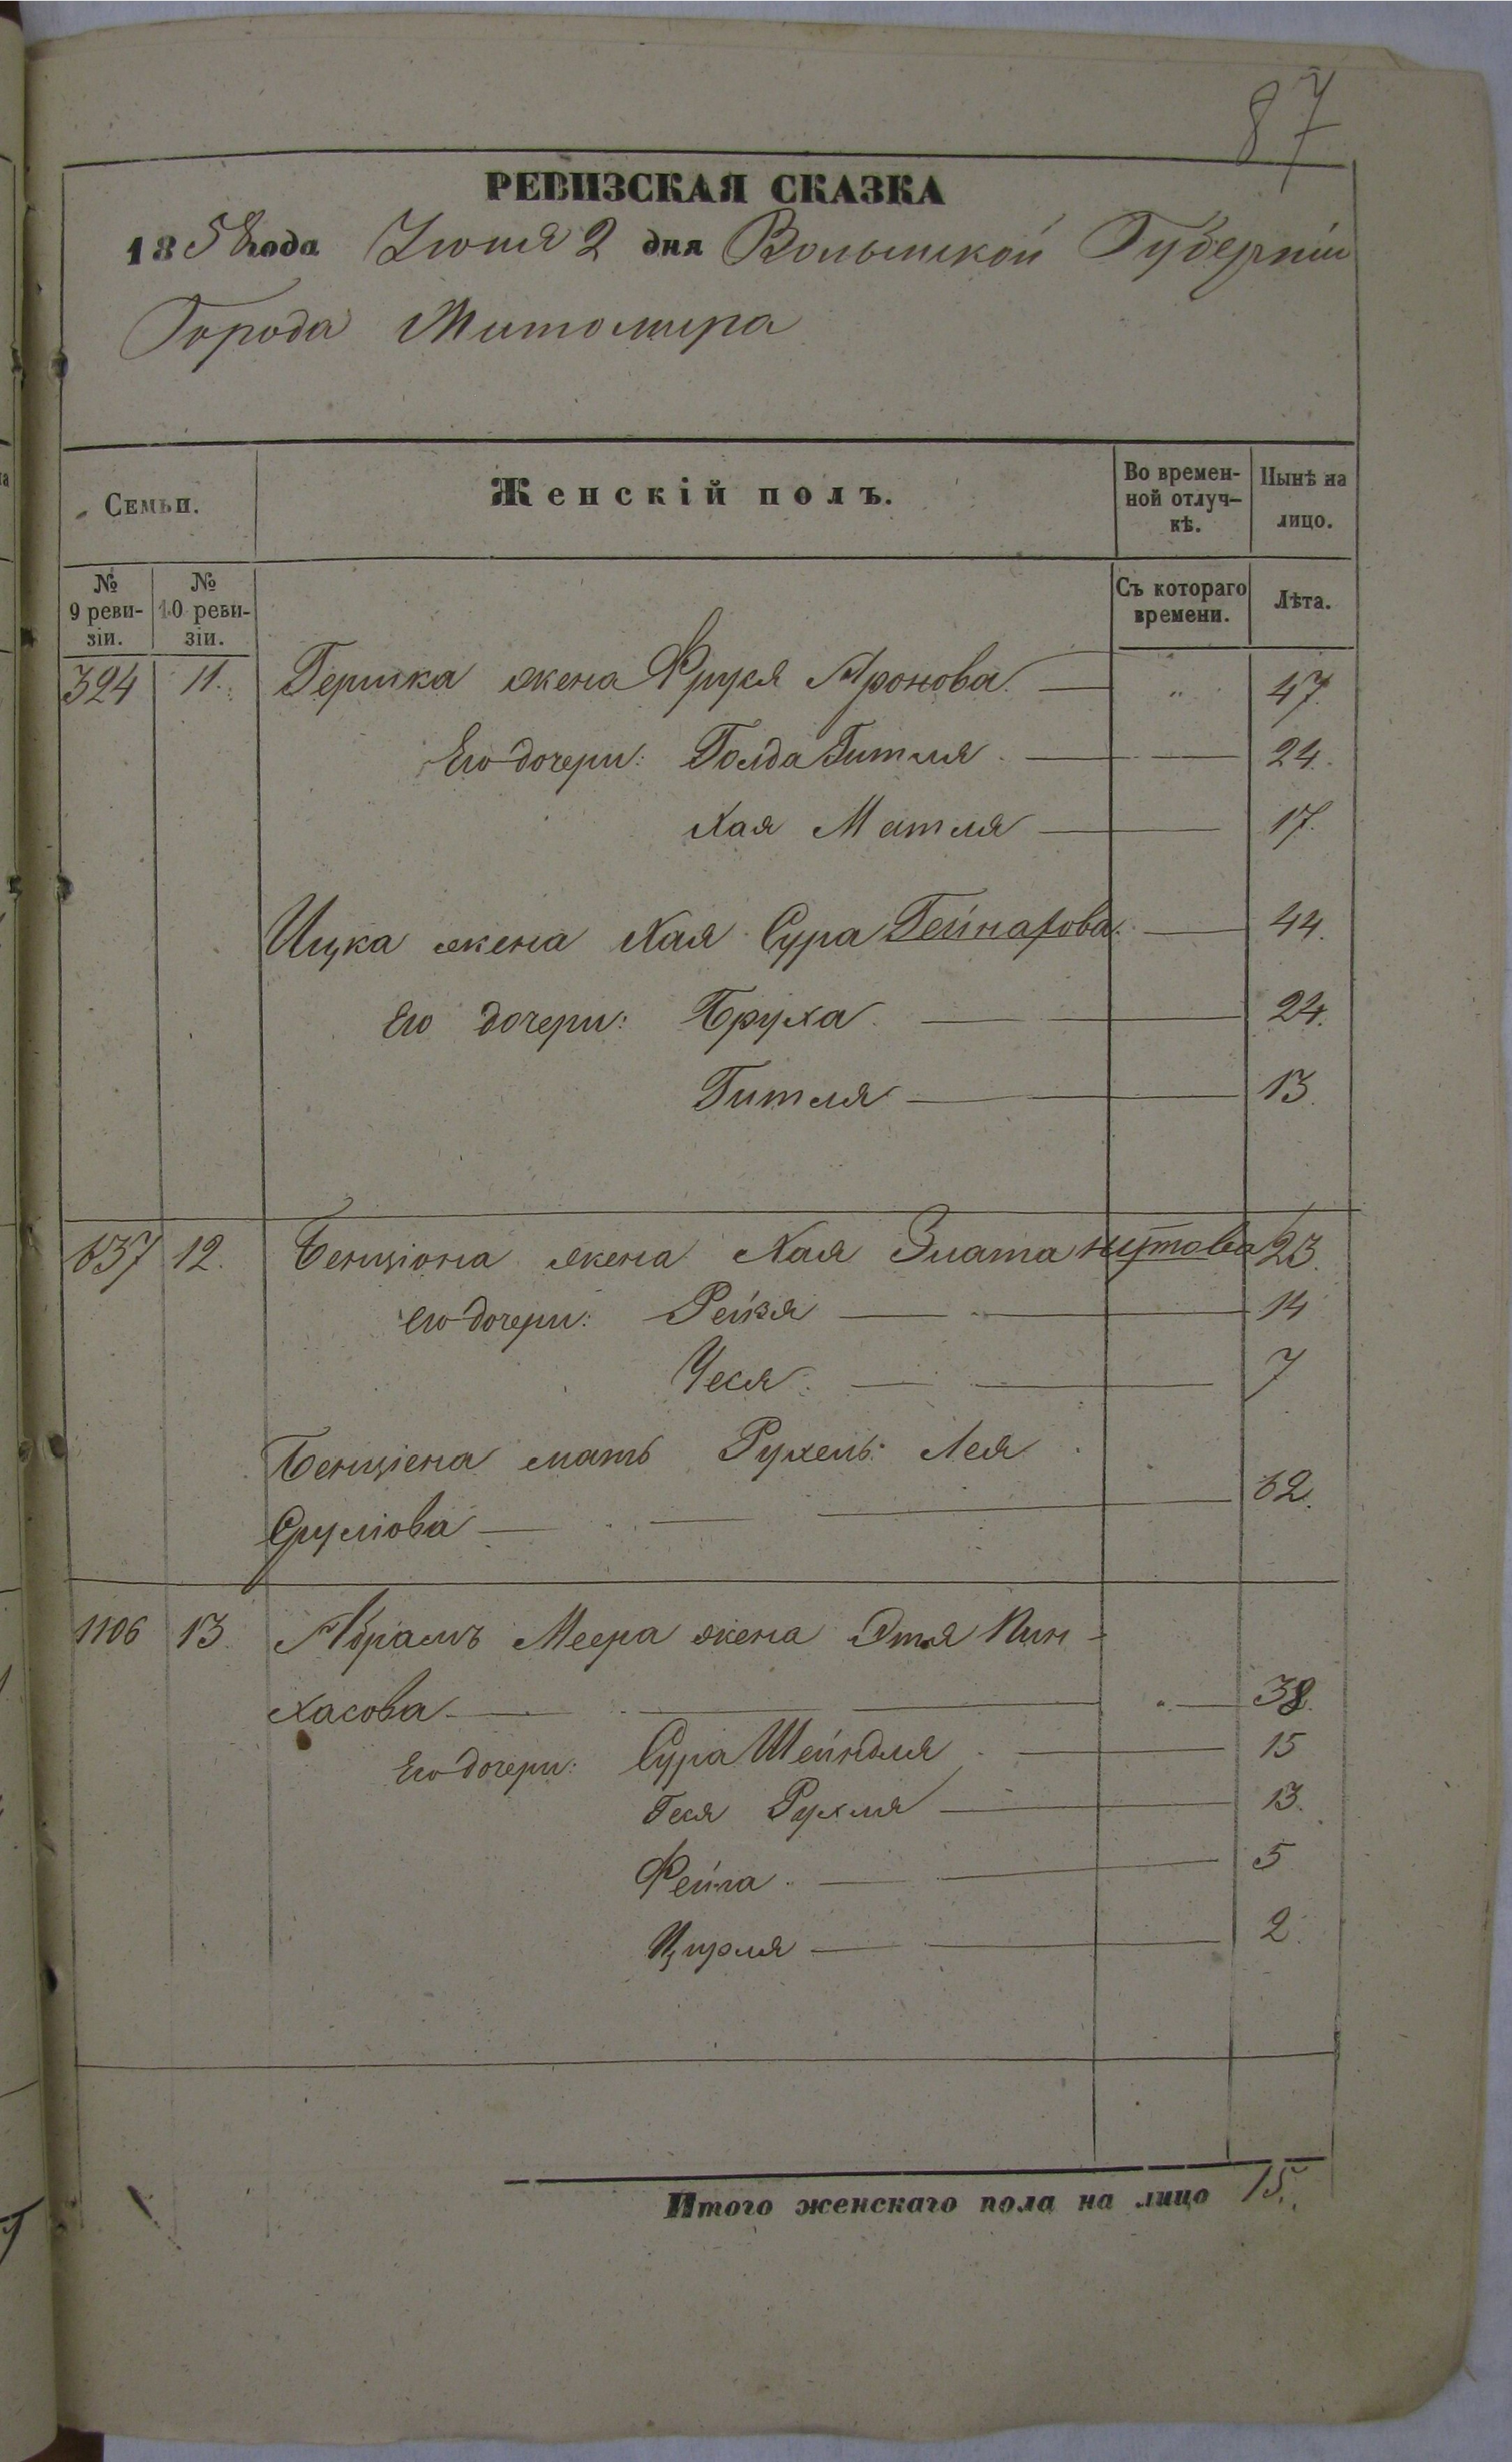 87
РЕВИЗСКАЯ СКАЗКА
1858 года Июня 2 дня Волынской Губерніи
Города Житомира
Семьи.
Женскій полъ.
Во времен-
ной отлуч-
кѣ.
Нынѣ на
лицо.
№
9 реви-
зіи.
№
10 реви-
зіи.
Съ котораго
времени.
Лѣта.
324 11. Гершка жена Фруся Аронова — " 47.
Его дочери: Голда Гитля — — 24.
Хая Матля — — 17.
Ицка жена Хая Сура — 44.
Его дочери: Бруха — — 24.
Гитля — — 13.
637 12. Бенціона жена Хая Злата 23.
Его дочери: Рейзя — — 14
Чеся — — 7
Бенціона мать Рухель Лея
Срулiова — — — 62.
1106 13. Абрамъ Меера жена Этя Пин-
хасова — — — " — 38.
Его дочери: Сура Шейндля — 15
Геся Рухля — — 13.
Фейга — — 5
Цирля — — 2.
Итого женскаго пола на лицо 15.